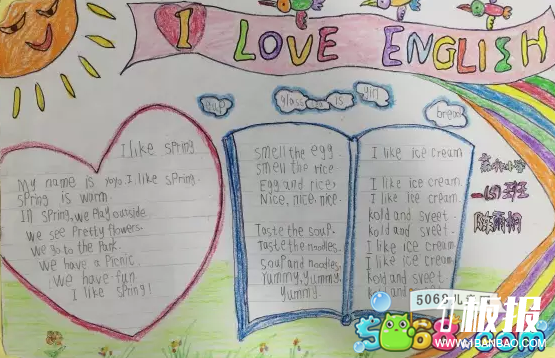 I LOVE ENGLISH
cup
glass
is
girl
bread
I like spring
My name is yoyo. I like spring.
spring is warm.
In spring, we play outside.
we see Pretty flowers.
we go to the Park.
we have a Picnic.
we have fun.
I like spring!
smell the egg.
smell the rice.
Egg and rice.
Nice, nice, nice.
Taste the soup.
Taste the noodles.
soup and noodles.
Yummy, Yummy,
Yummy.
I like ice cream
I like ice cream.
I like ice cream.
kold and sveet.
kold and sveet.
I like ice cream
I like ice cream
kold and sveet
kold and
5068儿
板报
WWW.1BANBAO.COM